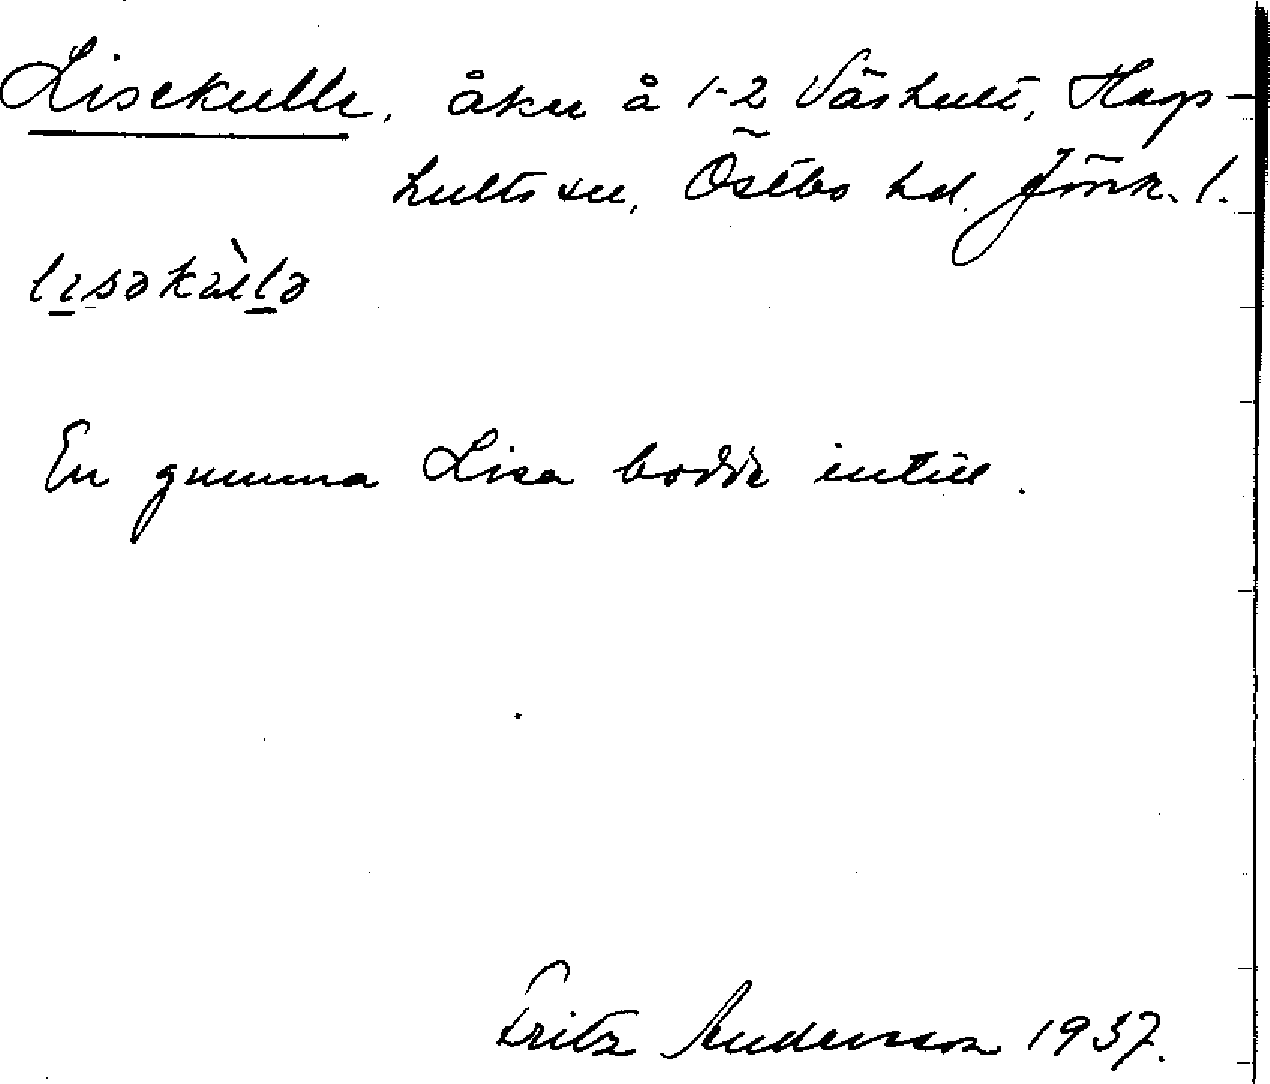 Lisekulle, åker å 1-2 Våshult, Hags-
hults sn, Östbo hd. Jönk. l.
lisəkàlə
En gumma Lisa bodde intill.
Fritz Andersson 1937.